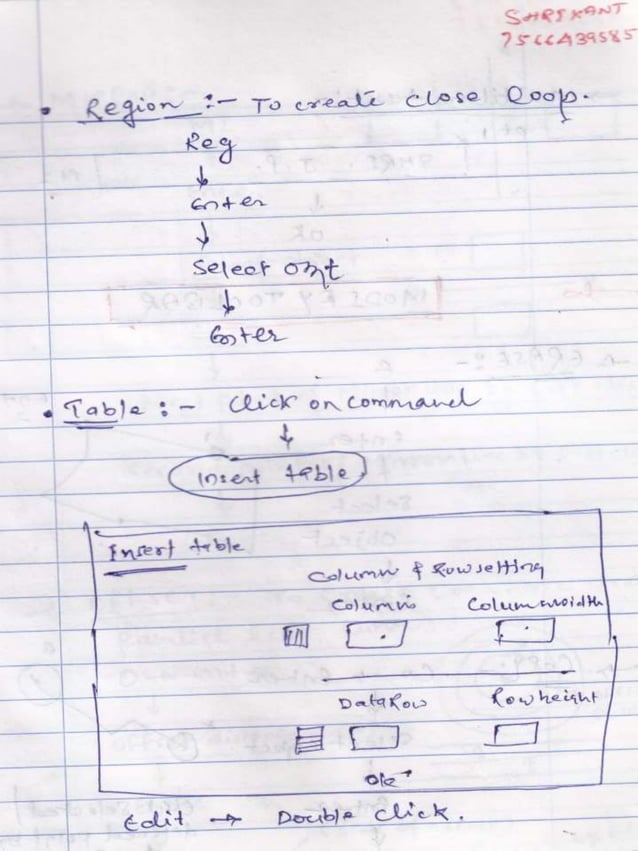 SHRIKANT
7566439585
• Region :- To create close loop.
Reg
↓
Enter
↓
Select
↓
Enter
• Table :- Click on command
↓
Insert table
Insert table
Column & Row setting
Column Column width
Data Row Row height
Ok
Edit → Double click.